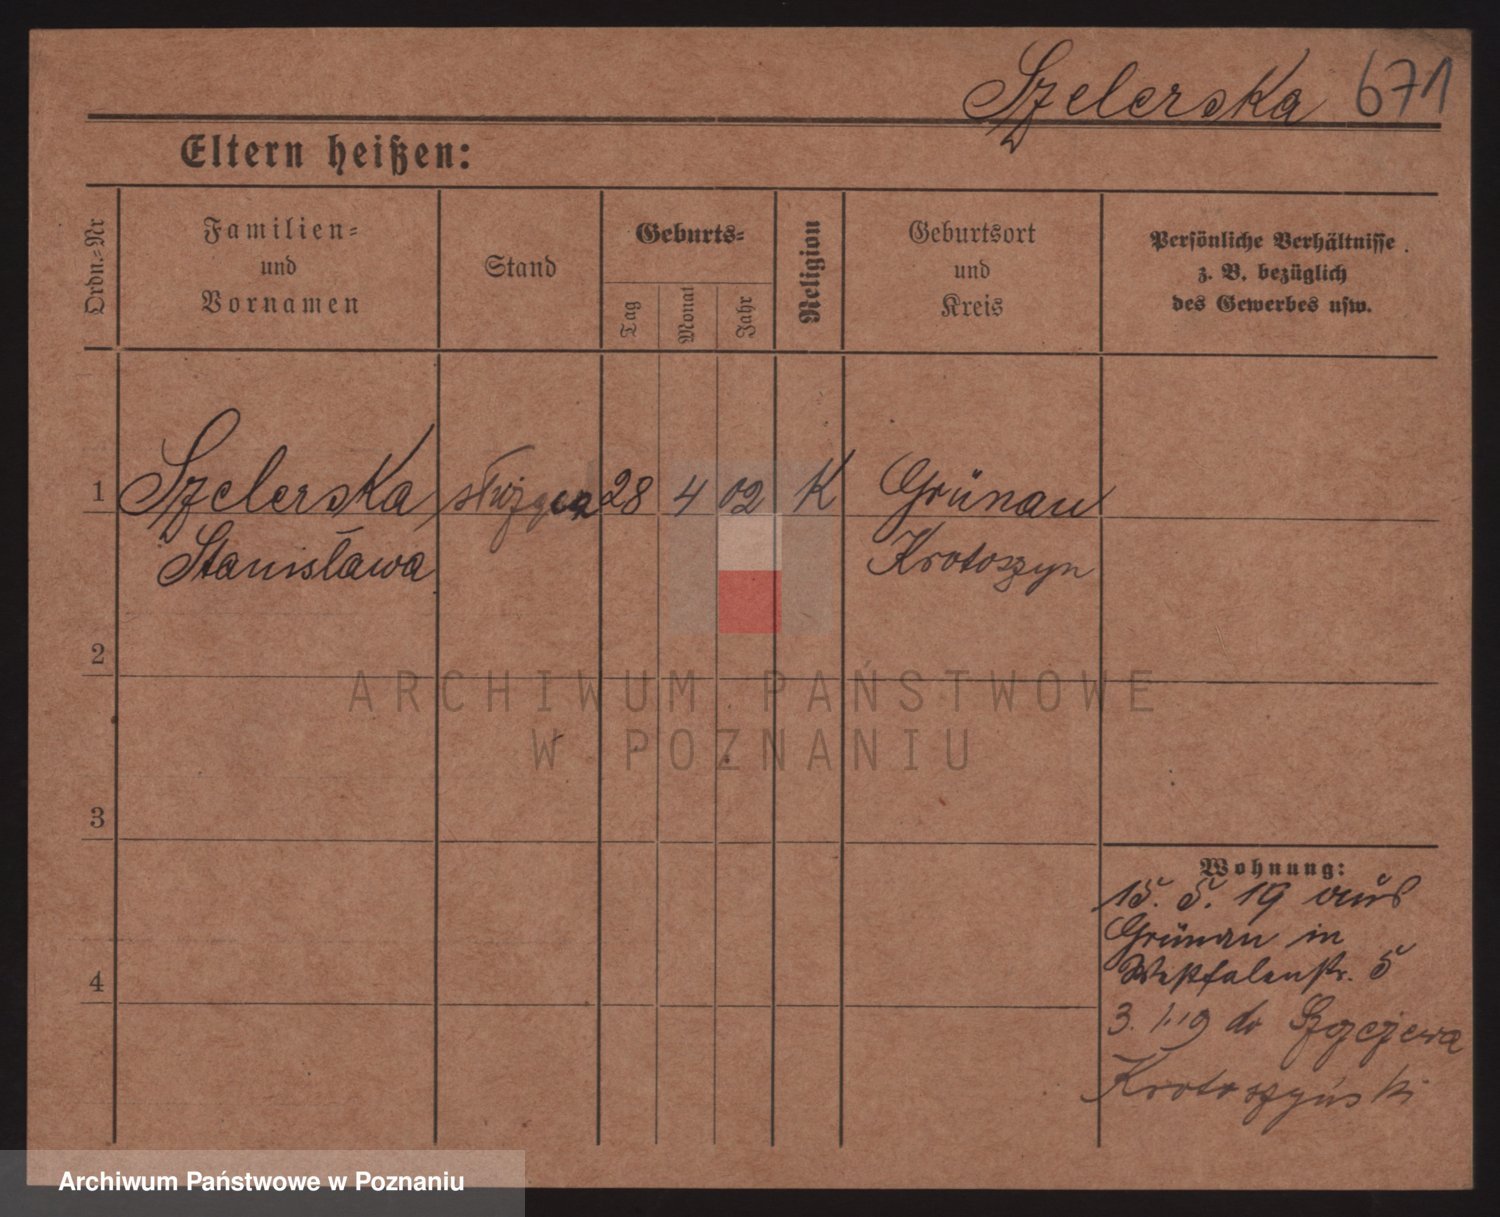 Szelerska 671
Eltern heißen:
Ordn.-Nr
Familien-
und
Vornamen
Stand
Geburts-
Tag
Monat
Jahr
Religion
Geburtsort
und
Kreis
Persönliche Verhältnisse
z. B. bezüglich
des Gewerbes usw.
1 Szelerska 28 4 02 K Grünau
Stanisława Krotoszyn
2
ARCHIWUM PAŃSTWOWE
W POZNANIU
3
Wohnung:
15. 5. 19 aus
Grünau in
Westfalenstr. 5
4
3. do
Krotoszyński
Archiwum Państwowe w Poznaniu